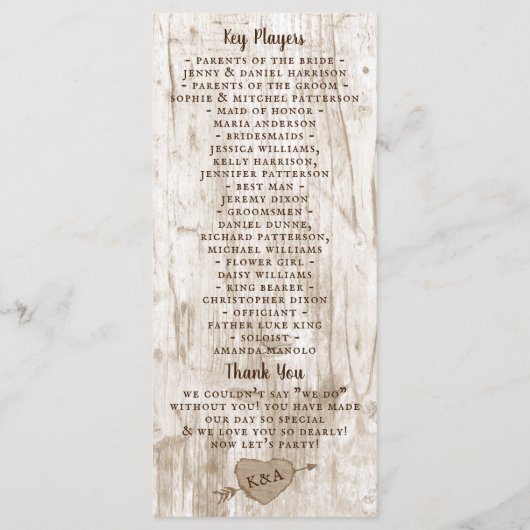 Key Players
- PARENTS OF THE BRIDE -
JENNY & DANIEL HARRISON
- PARENTS OF THE GROOM -
SOPHIE & MITCHEL PATTERSON
- MAID OF HONOR -
MARIA ANDERSON
- BRIDESMAIDS -
JESSICA WILLIAMS,
KELLY HARRISON,
JENNIFER PATTERSON
- BEST MAN -
JEREMY DIXON
- GROOMSMEN -
DANIEL DUNNE,
RICHARD PATTERSON,
MICHAEL WILLIAMS
- FLOWER GIRL -
DAISY WILLIAMS
- RING BEARER -
CHRISTOPHER DIXON
- OFFICIANT -
FATHER LUKE KING
- SOLOIST -
AMANDA MANOLO
Thank You
WE COULDN'T SAY "WE DO"
WITHOUT YOU! YOU HAVE MADE
OUR DAY SO SPECIAL
& WE LOVE YOU SO DEARLY!
NOW LET'S PARTY!
K&A